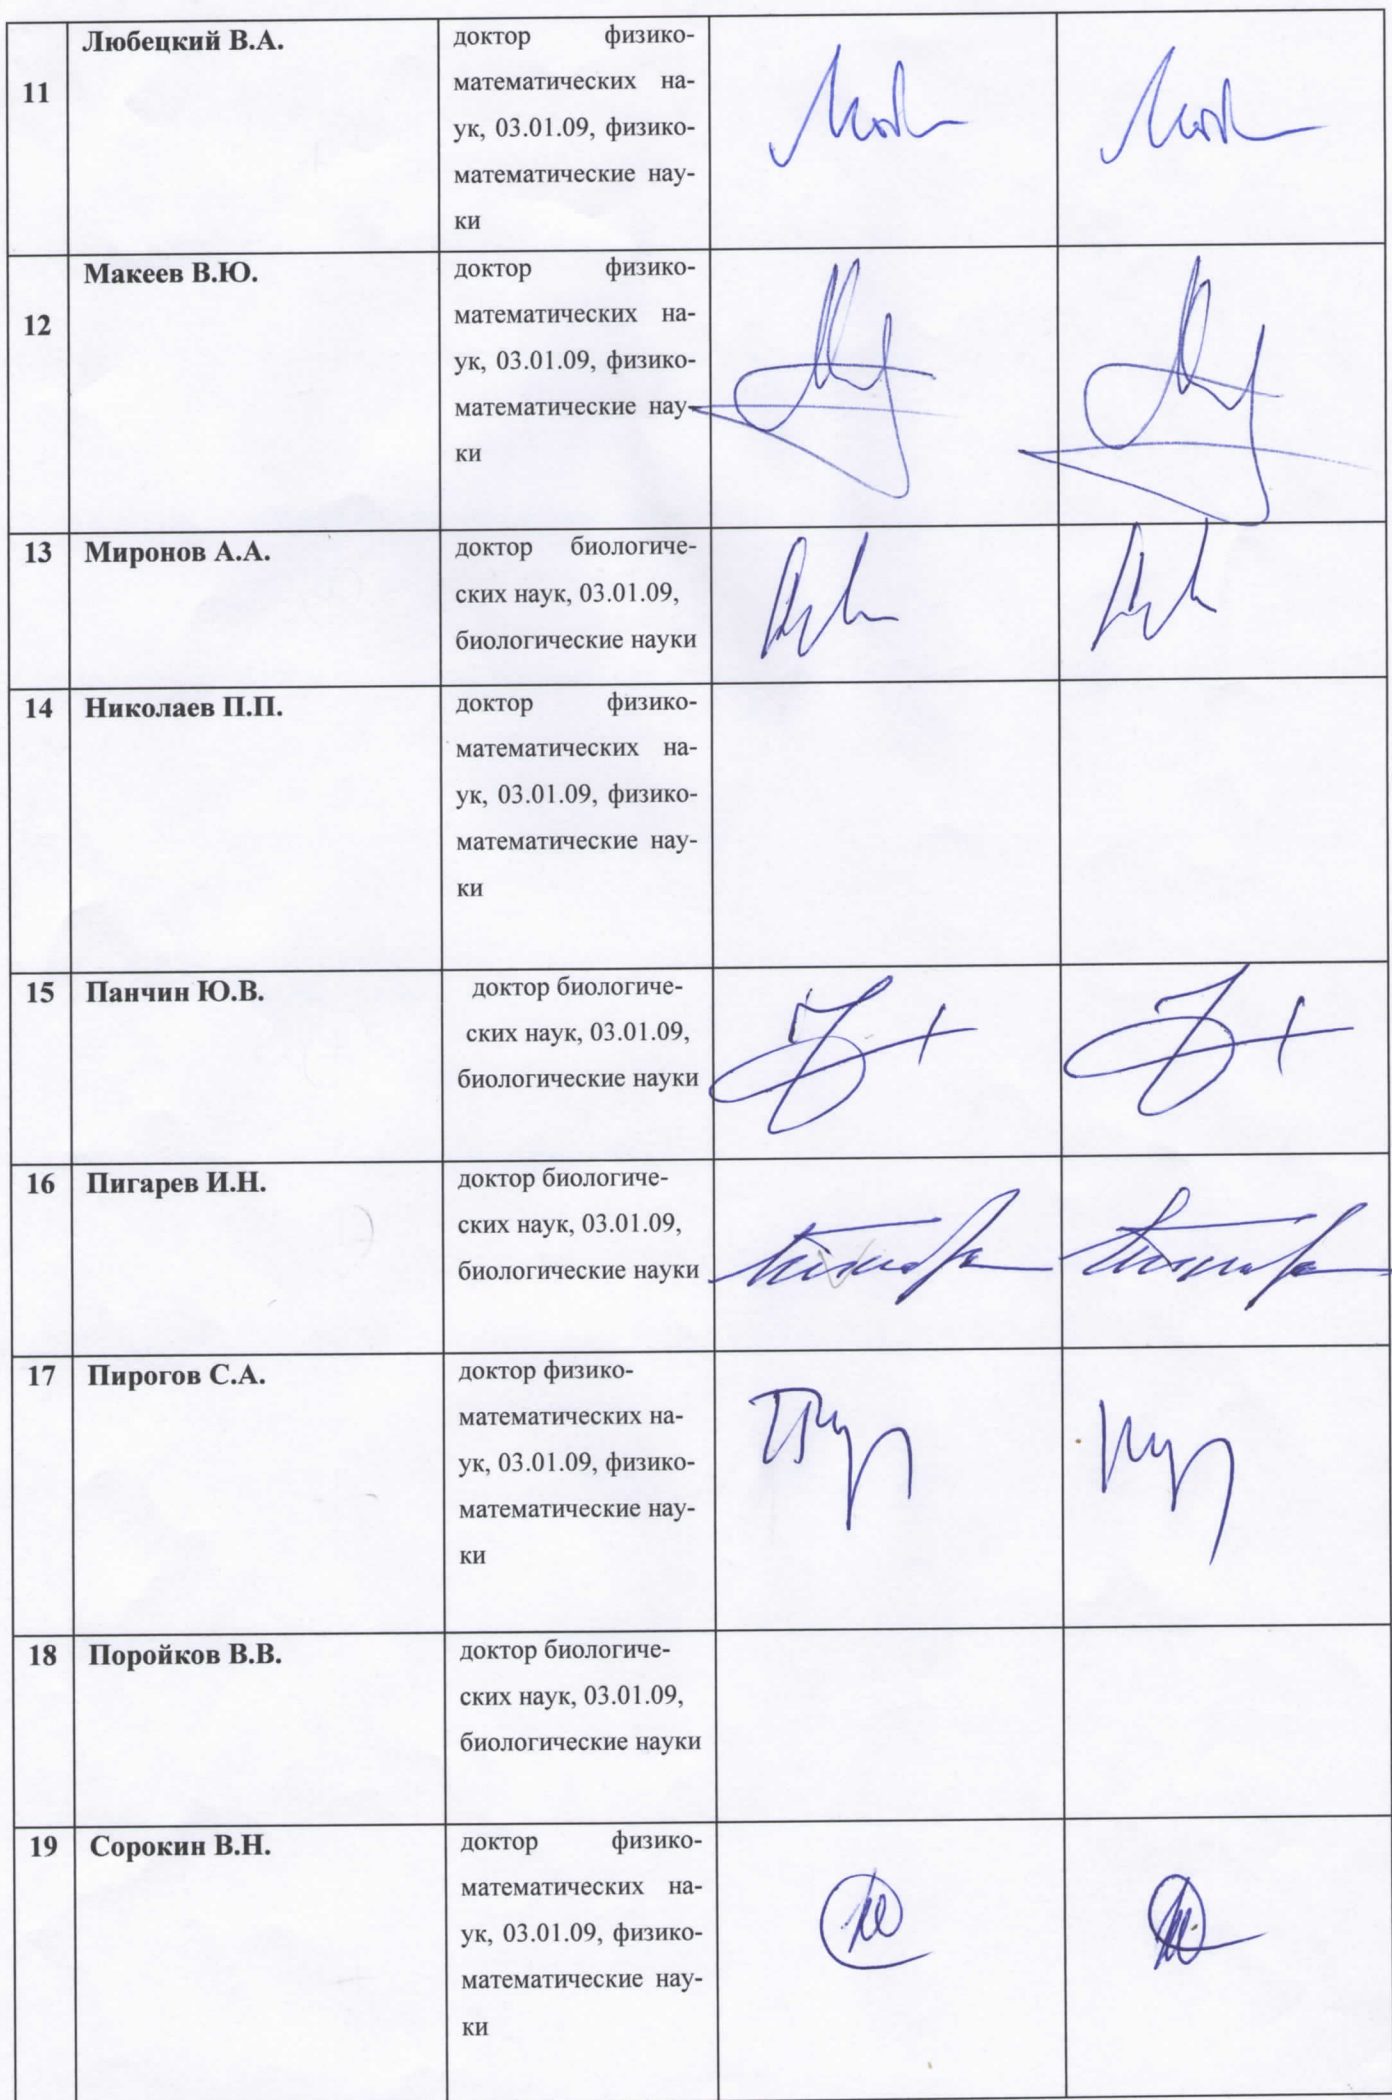 11
Любецкий В.А.
доктор физико-
математических на-
ук, 03.01.09, физико-
математические нау-
ки
12
Макеев В.Ю.
доктор физико-
математических на-
ук, 03.01.09, физико-
математические нау-
ки
13
Миронов А.А.
доктор биологиче-
ских наук, 03.01.09,
биологические науки
14
Николаев П.П.
доктор физико-
математических на-
ук, 03.01.09, физико-
математические нау-
ки
15
Панчин Ю.В.
доктор биологиче-
ских наук, 03.01.09,
биологические науки
16
Пигарев И.Н.
доктор биологиче-
ских наук, 03.01.09,
биологические науки
17
Пирогов С.А.
доктор физико-
математических на-
ук, 03.01.09, физико-
математические нау-
ки
18
Поройков В.В.
доктор биологиче-
ских наук, 03.01.09,
биологические науки
19
Сорокин В.Н.
доктор физико-
математических на-
ук, 03.01.09, физико-
математические нау-
ки